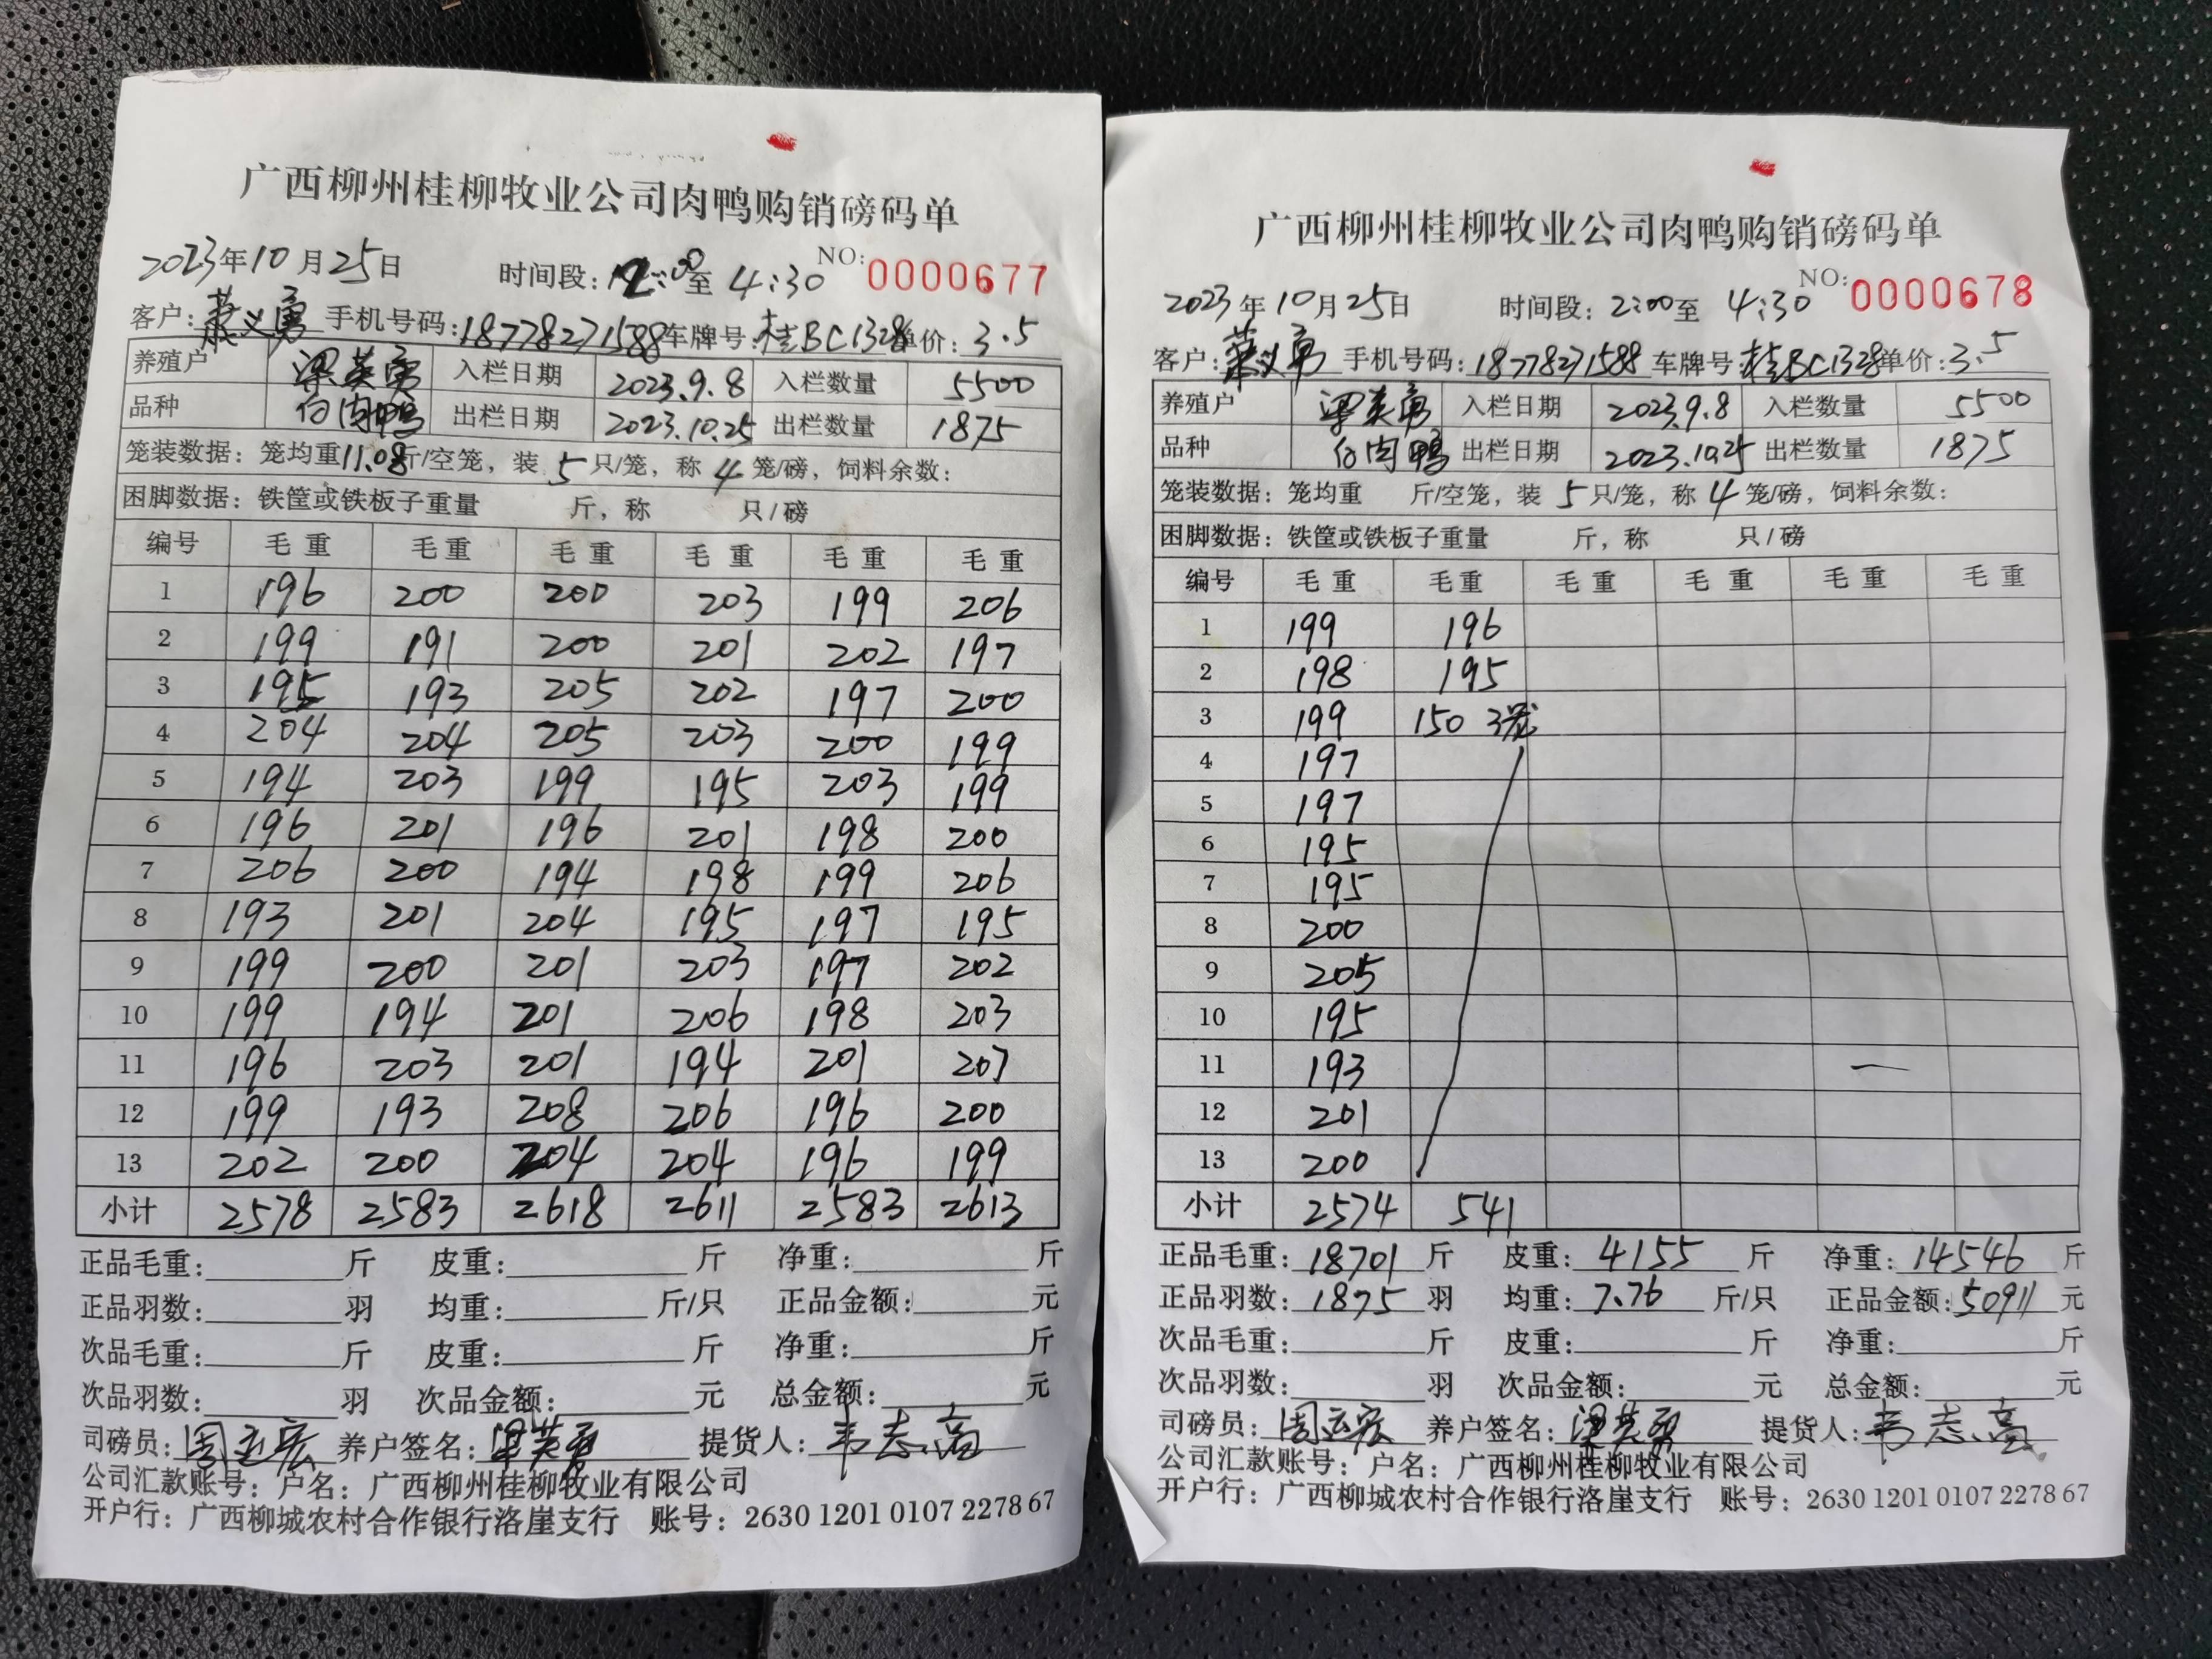 广西柳州桂柳牧业公司肉鸭购销磅码单
2023年10月25日 时间段:12:00至 4:30 NO:0000677
客户:义勇 手机号码:18778271588 车牌号:桂BC1328 单价:3.5
养殖户 梁英勇 入栏日期 2023.9.8 入栏数量 5500
品种 白肉鸭 出栏日期 2023.10.25 出栏数量 1875
笼装数据:笼均重11.08斤/空笼,装 5 只/笼,称 4 笼/磅,饲料余数:
困脚数据:铁筐或铁板子重量 斤,称 只/磅
编号 毛重 毛重 毛重 毛重 毛重 毛重
1 196 200 200 203 199 206
2 199 191 200 201 202 197
3 195 193 205 202 197 200
4 204 204 205 203 200 199
5 194 203 199 195 203 199
6 196 201 196 201 198 200
7 206 200 194 198 199 206
8 193 201 204 195 197 195
9 199 200 201 203 197 202
10 199 194 201 206 198 203
11 196 203 201 194 201 207
12 199 193 208 206 196 200
13 202 200 204 204 196 199
小计 2578 2583 2618 2611 2583 2613
正品毛重: 斤 皮重: 斤 净重: 斤
正品羽数: 羽 均重: 斤/只 正品金额: 元
次品毛重: 斤 皮重: 斤 净重: 斤
次品羽数: 羽 次品金额: 元 总金额: 元
司磅员:周立宏 养户签名:梁英勇 提货人:韦志高
公司汇款账号:户名:广西柳州桂柳牧业有限公司
开户行:广西柳城农村合作银行洛崖支行 账号:2630 1201 0107 2278 67
广西柳州桂柳牧业公司肉鸭购销磅码单
2023年10月25日 时间段:2:00至 4:30 NO:0000678
客户:义勇 手机号码:18778271588 车牌号:桂BC1328 单价:3.5
养殖户 梁英勇 入栏日期 2023.9.8 入栏数量 5500
品种 白肉鸭 出栏日期 2023.10.25 出栏数量 1875
笼装数据:笼均重 斤/空笼,装 5 只/笼,称 4 笼/磅,饲料余数:
困脚数据:铁筐或铁板子重量 斤,称 只/磅
编号 毛重 毛重 毛重 毛重 毛重 毛重
1 199 196
2 198 195
3 199 150 3笼
4 197
5 197
6 195
7 195
8 200
9 205
10 195
11 193
12 201
13 200
小计 2574 541
正品毛重:18701 斤 皮重:4155 斤 净重:14546 斤
正品羽数:1875 羽 均重:7.76 斤/只 正品金额:50911 元
次品毛重: 斤 皮重: 斤 净重: 斤
次品羽数: 羽 次品金额: 元 总金额: 元
司磅员:周立宏 养户签名:梁英勇 提货人:韦志高
公司汇款账号:户名:广西柳州桂柳牧业有限公司
开户行:广西柳城农村合作银行洛崖支行 账号:2630 1201 0107 2278 67